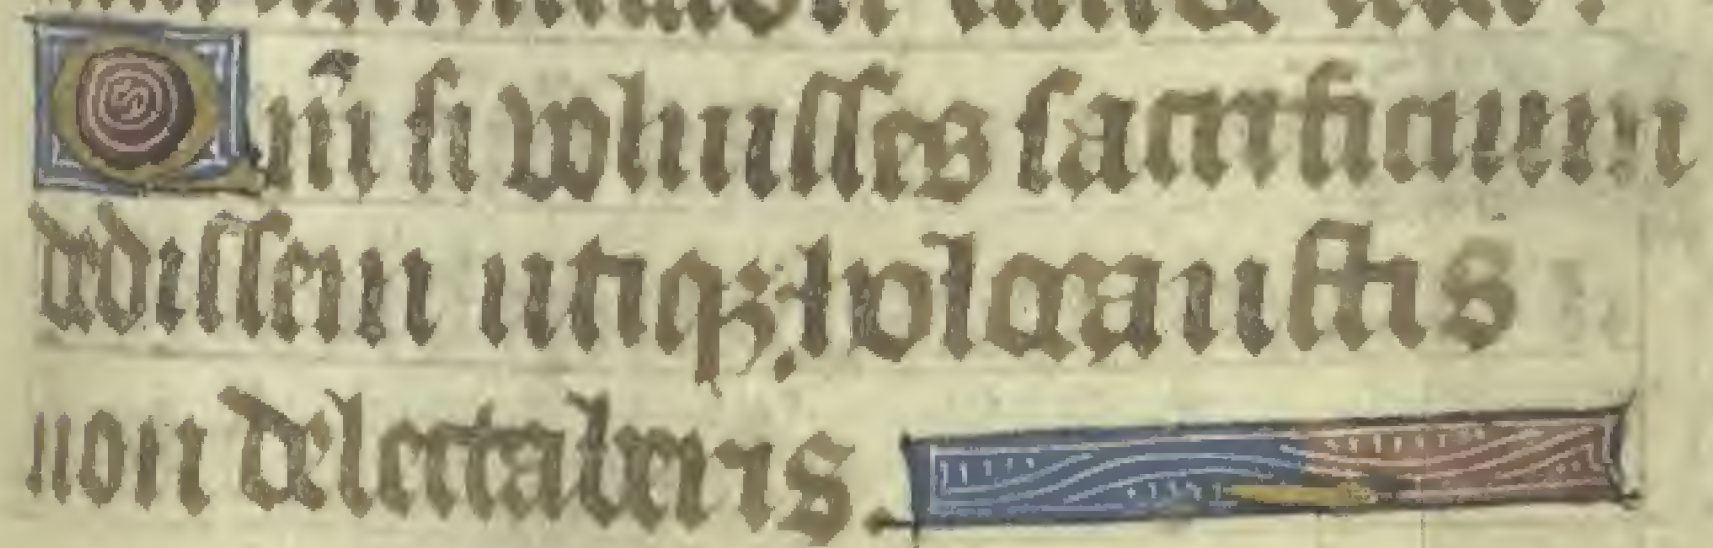 Qm̄ si voluisses sacrificium
dedissem utiqꝫ: holocaustis
non delectaberis.